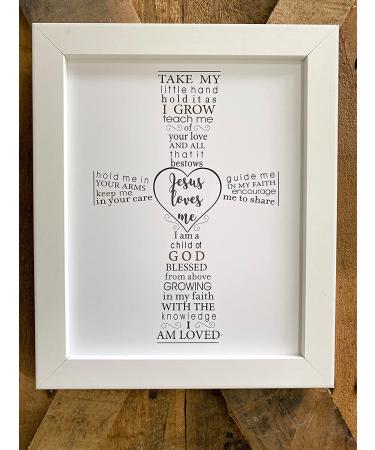 TAKE MY
little hand
hold it as
I GROW
teach me
of
your love
AND ALL
that it
bestows
hold me in
YOUR ARMS
keep me
in your care
Jesus
loves
me
guide me
IN MY FAITH
encourage
me to share
I am a
child of
GOD
BLESSED
from above
GROWING
in my faith
WITH THE
knowledge
I
AM LOVED